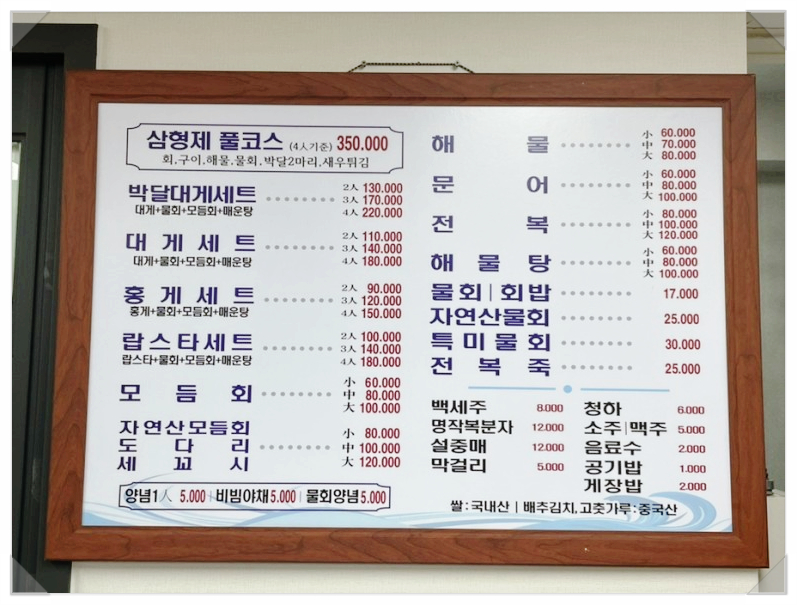 삼형제 풀코스 (4人기준) 350.000
회.구이.해물.물회.박달2마리.새우튀김
박달대게세트 2人 130.000
대게+물회+모듬회+매운탕 3人 170.000
4人 220.000
대게세트 2人 110.000
3人 140.000
대게+물회+모듬회+매운탕 4人 180.000
홍게세트 2人 90.000
3人 120.000
홍게+물회+모듬회+매운탕 4人 150.000
랍스타세트 2人 100.000
3人 140.000
랍스타+물회+모듬회+매운탕 4人 180.000
모듬회 小 60.000
中 80.000
大 100.000
자연산모듬회 小 80.000
도다리 中 100.000
세꼬시 大 120.000
양념1人 5.000 | 비빔야채 5.000 | 물회양념 5.000
해물 小 60.000
中 70.000
大 80.000
문어 小 60.000
中 80.000
大 100.000
전복 小 80.000
中 100.000
大 120.000
해물탕 小 60.000
中 80.000
大 100.000
물회|회밥 17.000
자연산물회 25.000
특미물회 30.000
전복죽 25.000
백세주 8.000
명작복분자 12.000
설중매 12.000
막걸리 5.000
청하 6.000
소주|맥주 5.000
음료수 2.000
공기밥 1.000
게장밥 2.000
쌀:국내산 | 배추김치,고춧가루:중국산